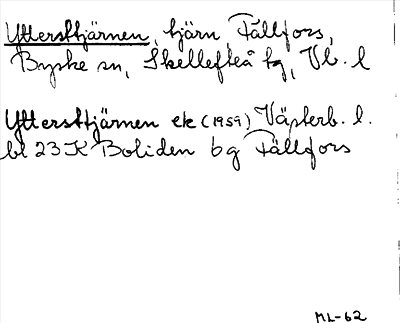 Yttersttjärnen, tjärn, Fällfors,
Byske sn, Skellefteå tg, Vb. l
Yttersttjärnen ek (1959) Västerb. l.
bl 23 K Boliden 6 g Fällfors
ML-62